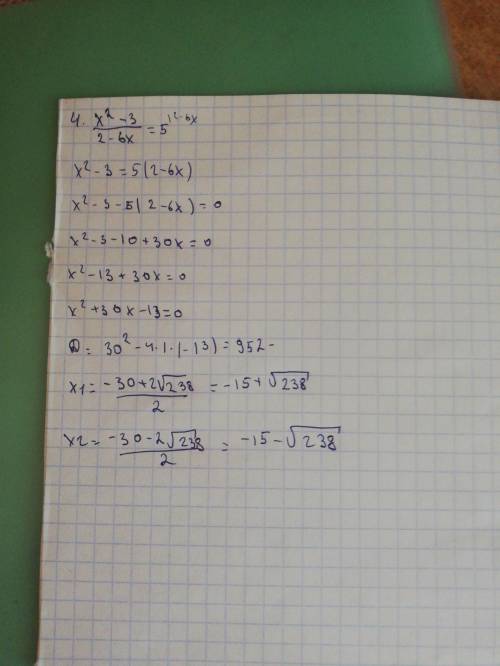 4. x² - 3 / 2 - 6x = 5 |2 - 6x
x² - 3 = 5(2 - 6x)
x² - 3 - 5(2 - 6x) = 0
x² - 3 - 10 + 30x = 0
x² - 13 + 30x = 0
x² + 30x - 13 = 0
D = 30² - 4·1·(-13) = 952 -
x1 = -30 + 2√238 / 2 = -15 + √238
x2 = -30 - 2√238 / 2 = -15 - √238